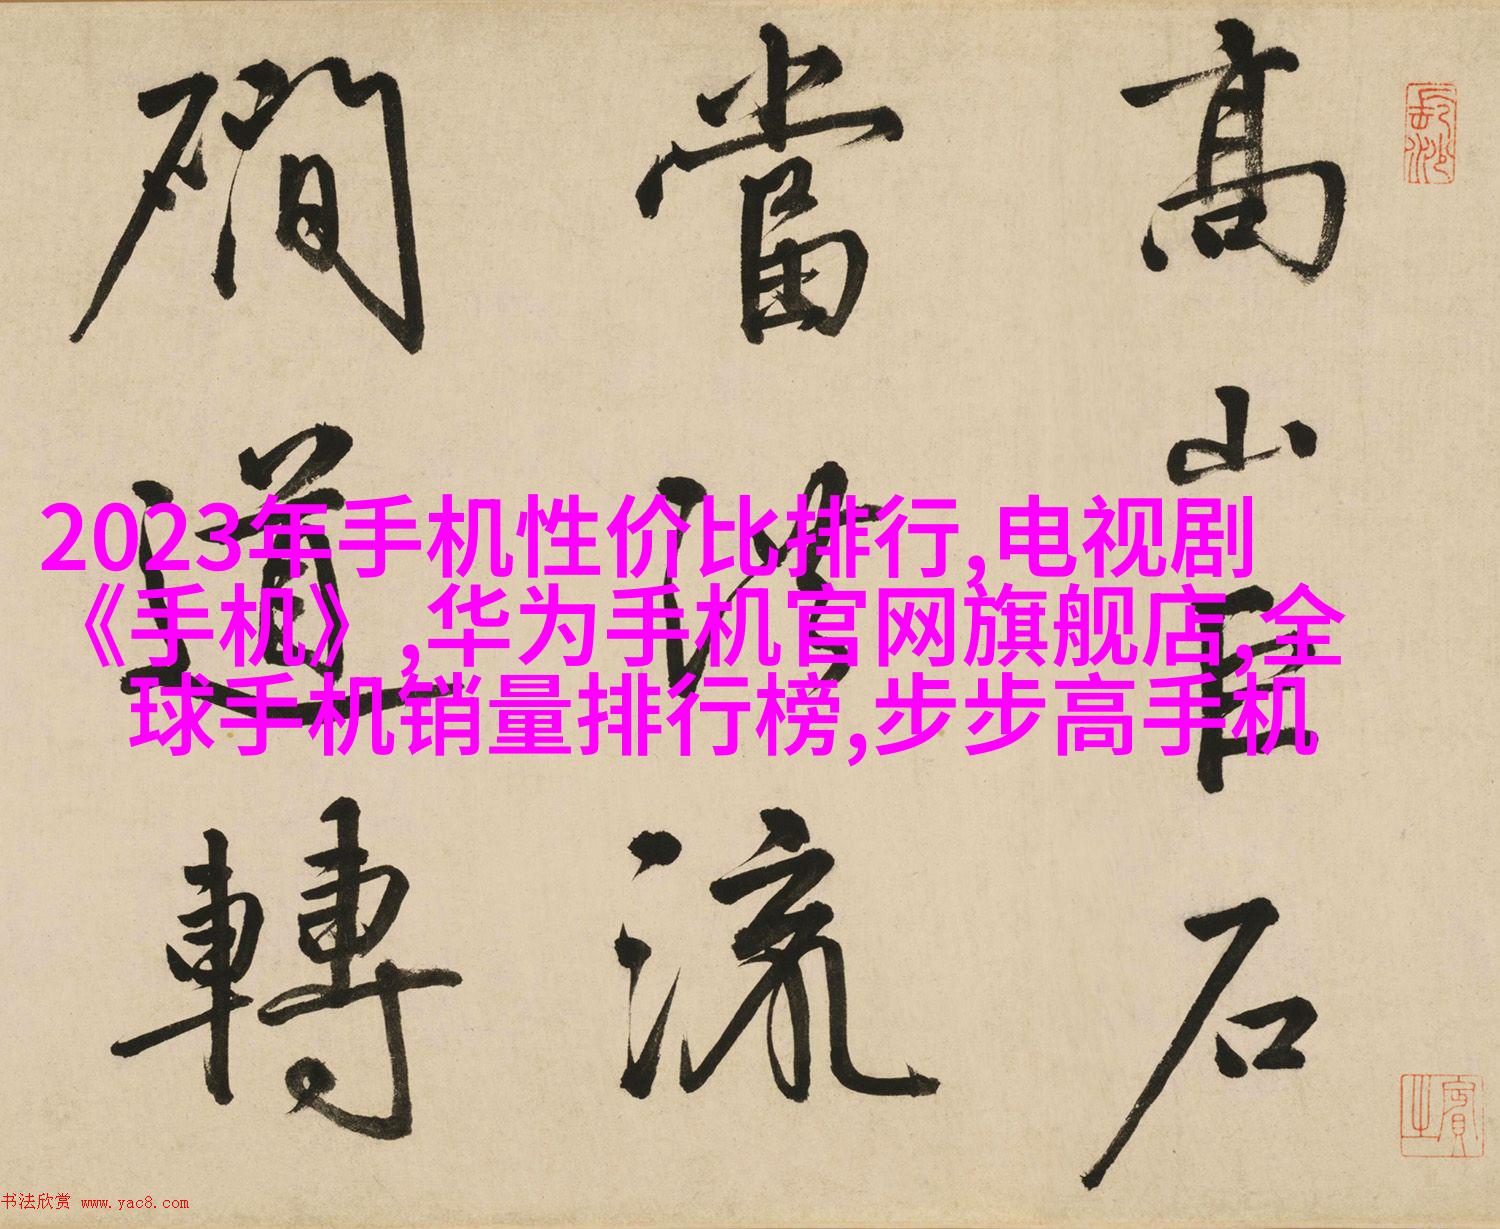 高山巨石
當洪流
磵道轉
長沙
賓之
2023年手机性价比排行,电视剧
《手机》,华为手机官网旗舰店,全
球手机销量排行榜,步步高手机
书法欣赏 www.yac8.com